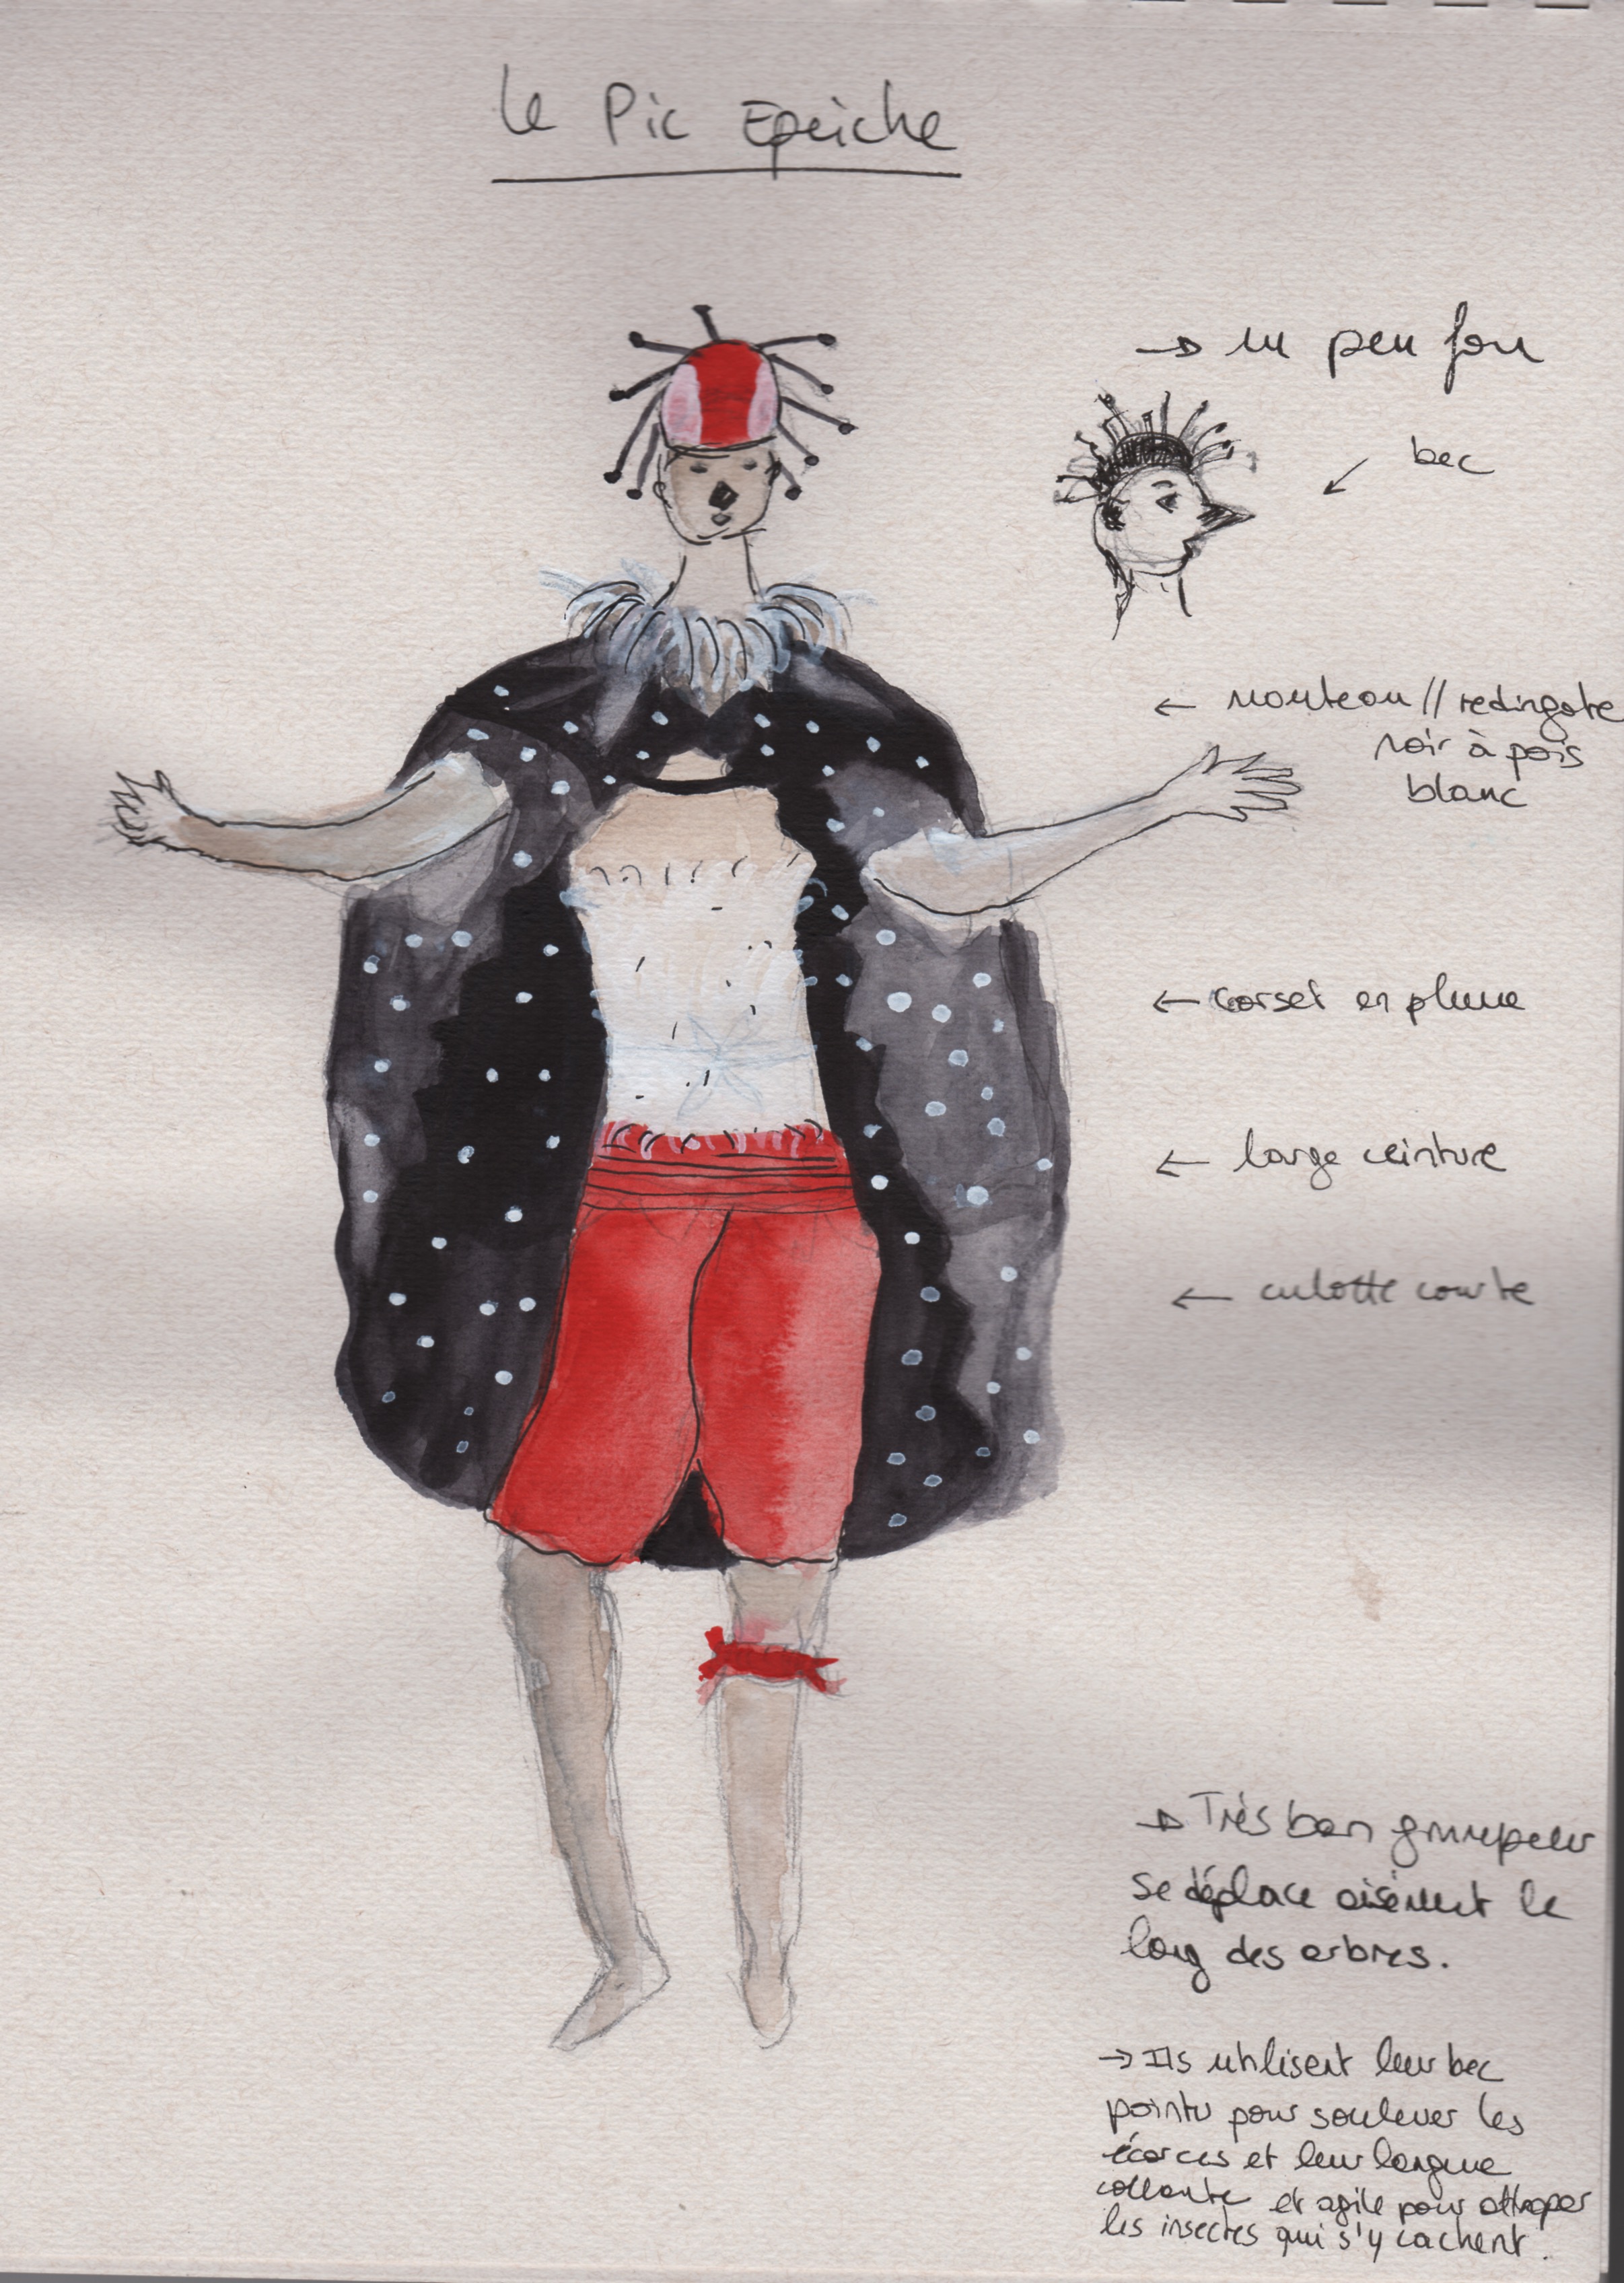 Le Pic Epeiche
→ un peu fou
bec
← manteau // redingote
noir à pois
blanc
← corset en plume
← large ceinture
← culotte courte
→ Très bon grimpeur
se déplace aisément le
long des arbres.
→ Ils utilisent leur bec
pointu pour soulever les
écorces et leur langue
collante et agile pour attraper
les insectes qui s'y cachent.